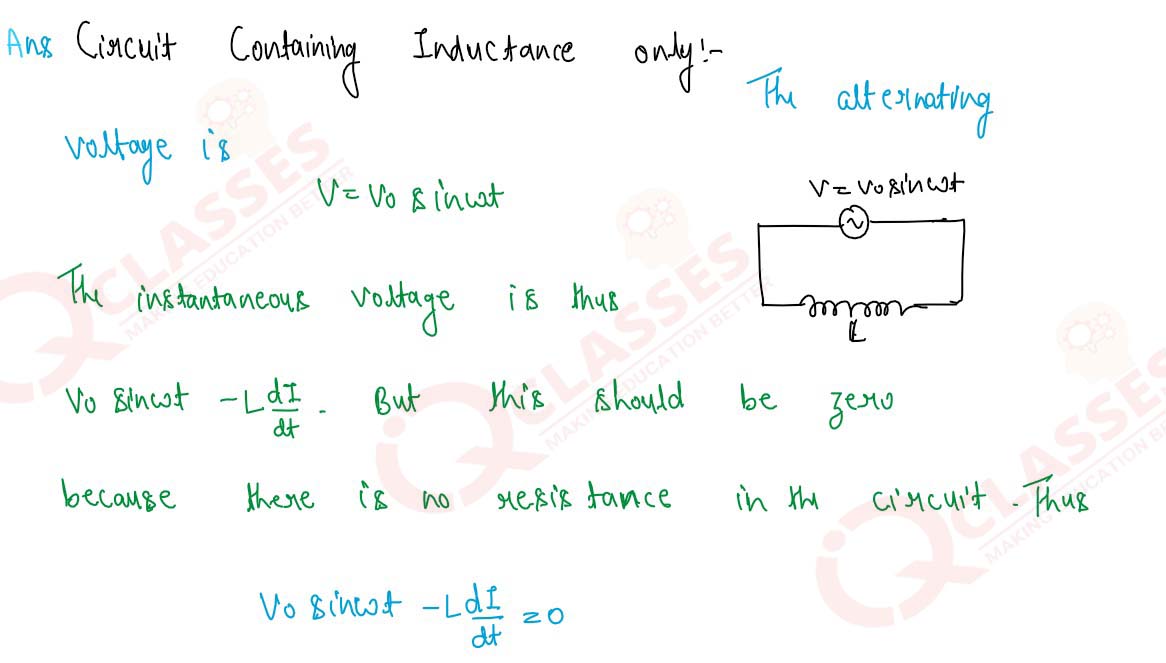 Ans Circuit Containing Inductance only:-
The alternating
voltage is
V = V0 sinωt
V = V0 sinωt
L
The instantaneous voltage is thus
V0 sinωt - L dI/dt . But this should be zero
because there is no resistance in the circuit. Thus
V0 sinωt - L dI/dt = 0
QCLASSES
MAKING EDUCATION BETTER
QCLASSES
MAKING EDUCATION BETTER
QCLASSES
MAKING EDUCATION